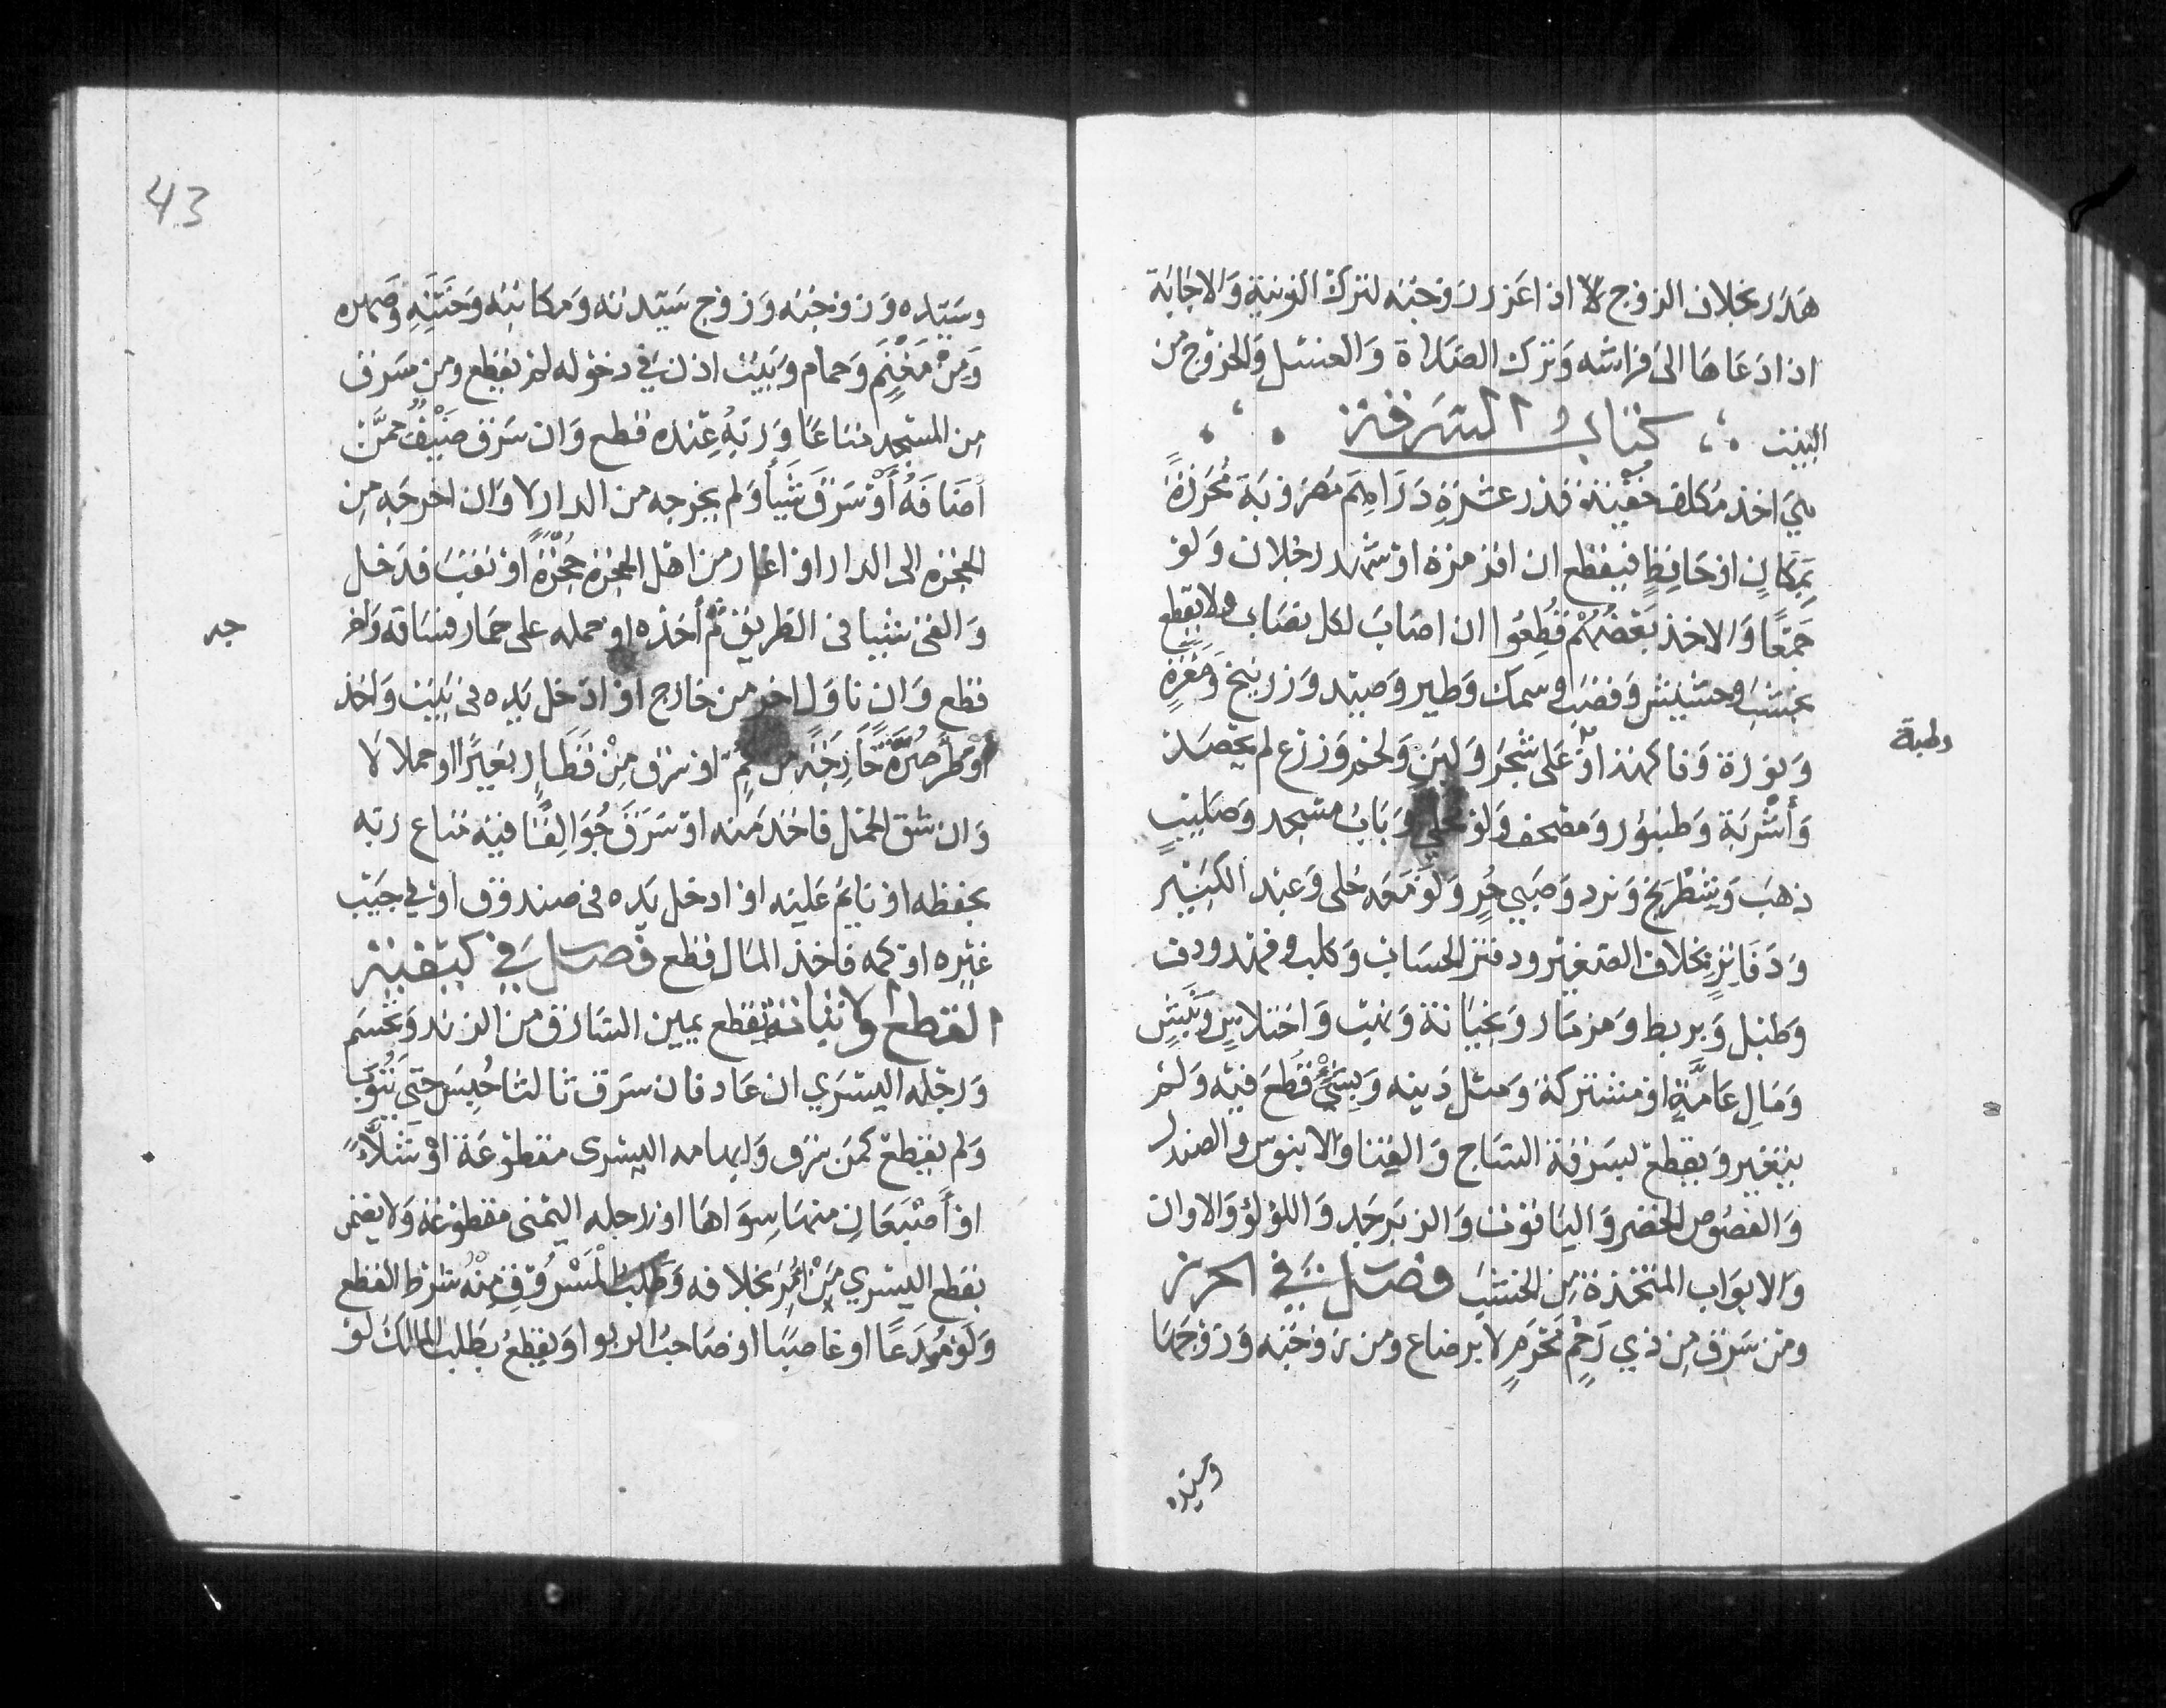 هدر بخلاف الزوج لا اذا عزر زوجته لترك الزينة والاجابة
اذا دعاها الى فراشه وترك الصلاة والغسل والخروج من
البيت كتاب السرقة
هي اخذ مكلف خفية قدر عشرة دَرَاهِمَ مضروبة مُحرَزَةً
بِمَكَانٍ اوْ حَافِظٍ فيقطع ان اقر مرة اوْ شهد رجلان وَلوْ
جَمْعًا وَالاخذ بَعْضُهُمْ قُطِعُوا ان اصَابَ لكل نصَاب ولا يقطع
بخشب وحشيش وَقصَب وسمك وَطير وَصيد وَزرنيخ وَمَغْرَةٍ
وَنورة وَفاكهة اوْ عَلى شَجَر وَلبَنٍ وَلحم وَزرع لم يحصد
وَأَشْرِبَة وَطنبُور وَمصْحف وَلوْ محلى وَبَاب مسْجد وَصَليبِ
ذهب وَشطْرنج وَنرد وَصَبي حُرٍ وَلوْ مَعَه حُلى وَعبد الكبَير
وَدَفاتِرٍ بخلاف الصغير ودفتر الحسَاب وَكلب وفهد ودف
وَطبْل وَبربط وَمزمَار وَبخيَانة وَنهب وَاختلاسٍ وَنَبْشٍ
وَمَالِ عَامَّةٍ اوْ مشتركة وَمثل دَينه وَبِشَيْءٍ قُطعَ فيه وَلمْ
يتغير وَيقطع بسَرقة السَاج وَالقنا وَالابنوس والصندل
وَالفصُوص الخضر وَاليَاقوت وَالزبَرجَد وَاللؤلؤ وَالاوان
وَالابوَاب المتخذة مِن الخشب فصل في الحرز
ومن سَرَق مِن ذي رَحِم مَحْرَمٍ لا برضاع ومن زوْجَته وَزوْجهَا
وطبة
وسَيّده
43
وسَيّده وَزوْجَته وَزوج سَيّدته وَمكاتبه وَخَتَنِهِ وَصهره
وَمِنْ مَغْنَمٍ وَحمام وَبَيت اذن في دخوله لم يقطع ومن سَرق
مِن المسْجد متاعًا وَرَبّهُ عِنده قطع وَان سَرَق ضَيْفٌ ممَّن
أضَافَهُ أَوْ سَرَقَ شَيأ وَلم يخرجه من الدار لا وَان اخرجَه مِن
الحجرة الى الدار اوْ اغار من اهْل الحجرة حُجْرَةً اوْ نقبَ فدَخل
وَالقى شيا فى الطريق ثمَّ أخذه او حمله على حمَار فسَاقه وَاخر
قطع وَان ناوَل اخر من خارج اوْ ادخل يَده فى بَيت وَاخذ
أوْ طَرَّ صُرَّةً خَارِجَةً مِن كُمٍّ اوْ سَرق مِنْ قَطَارٍ بَعيرًا اوْ حملا لا
وَان شق الحمْل فاخذ منه اوْ سَرَقَ جُوَالِقًا فيه متاع رَبه
يحفظه اوْ نايم عَليه اوْ ادخل يَده فى صندوق اوْ في جَيْب
غيره اوْ كمه فاخذ المَال قطع فصل في كيفية
القطع واثباته تقطع يمين السَارق من الزند وَتحْسَم
وَرجله اليسْرَي ان عَاد فان سَرَق ثالثا حُبِسَ حَتى يَتُوبَ
وَلم يقطع كمَن سَرَق وَابهامه اليسْرى مقطوعَة اوْ شَلَّاءُ
اوْ أصْبَعَانِ منهَا سِوَاهَا اوْ رجله اليمْنى مقطوعَة وَلا يضمن
بقطع اليسْري مَنْ امِرَ بخلافه وَطَلب المَسْرُوق مِنْهُ شرْط القطع
وَلوْ مُودَعًا اوْ غاصبًا اوْ صَاحبُ الربوا وَيقطعُ بطلب المالك لوْ